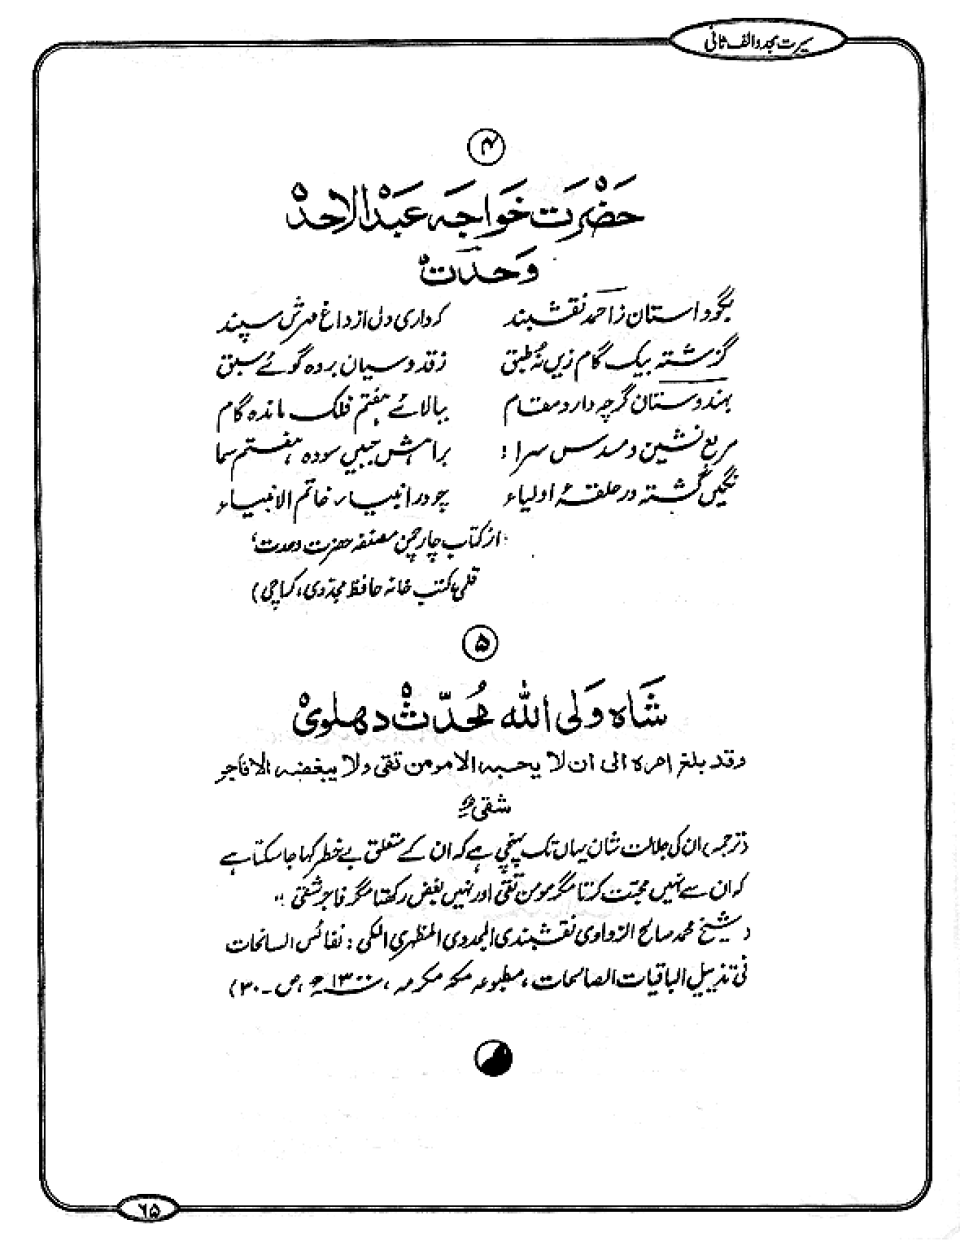 سیرت مجدد الف ثانی
۴
حضرت خواجہ عبدالاحد
وحدت
بگو داستان ز احمد نقشبند کرداری دل از داغ مہرش سپند
گزشتہ بیک گام زیں نہ طبق ز قدوسیان بردہ گوئے سبق
ہندوستان گرچہ دارد مقام ببالائے ہفتم فلک ماندہ گام
مربع نشین و مسدس سرا : براہش جبیں سودہ ہفتم سما
نگیں گشتہ در حلقۂ اولیاء چو در انبیاء خاتم الانبیاء
از کتاب چارچمن مصنفہ حضرت وحدت'
قلمی، کتب خانہ حافظ مجددی، کراچی)
۵
شاہ ولی اللہ محدث دھلوی
وقد بلغ امرہ الی ان لا یحبہ الا مومن تقی ولا یبغضہ الا فاجر
شقی
(ترجمہ) ان کی جلالت شان یہاں تک پہنچی ہے کہ ان کے متعلق بے خطر کہا جا سکتا ہے
کہ ان سے نہیں محبت کرتا مگر مومن تقی اور نہیں بغض رکھتا مگر فاجر شقی "
(شیخ محمد صالح الزواوی نقشبندی المجددی المظہری المکی : نفائس السانحات
فی تذییل الباقیات الصالحات، مطبوعہ مکہ مکرمہ، ۱۳۰۰ھ، ص۔۳۰)
۶۵